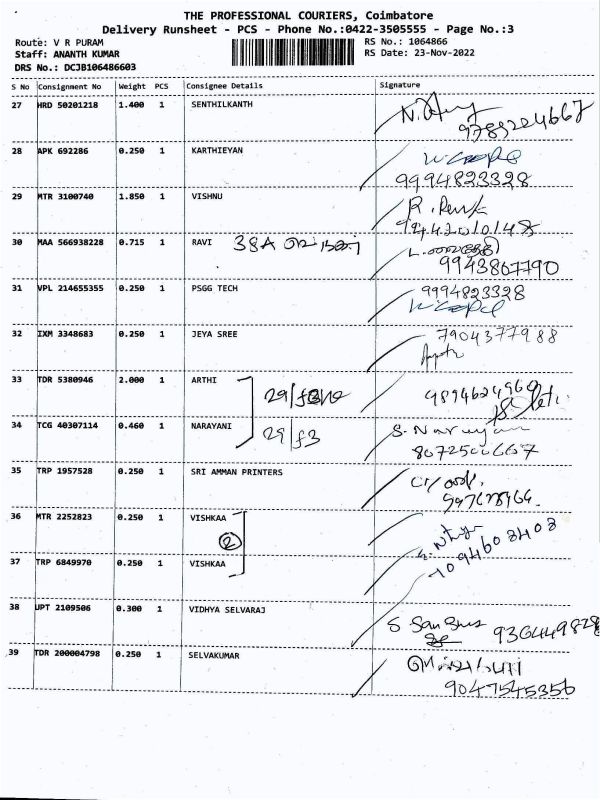 THE PROFESSIONAL COURIERS, Coimbatore
Delivery Runsheet - PCS - Phone No.:0422-3505555 - Page No.:3
Route: V R PURAM
RS No.: 1064866
Staff: ANANTH KUMAR
RS Date: 23-Nov-2022
DRS No.: DCJB106486603
S No Consignment No Weight PCS Consignee Details Signature
27 HRD 50201218 1.400 1 SENTHILKANTH
28 APK 692286 0.250 1 KARTHIEYAN
9994823328
29 MTR 3100740 1.850 1 VISHNU
9442010148
30 MAA 566938228 0.715 1 RAVI 38A
9943867790
31 VPL 214655355 0.250 1 PSGG TECH 9994823328
32 IXM 3348683 0.250 1 JEYA SREE 7904377988
33 TDR 5380946 2.000 1 ARTHI
9894624960
34 TCG 40307114 0.460 1 NARAYANI 29/f3 S. Narayan
35 TRP 1957528 0.250 1 SRI AMMAN PRINTERS
36 MTR 2252823 0.250 1 VISHKAA
2
37 TRP 6849970 0.250 1 VISHKAA
38 UPT 2109506 0.300 1 VIDHYA SELVARAJ
39 TDR 200004798 0.250 1 SELVAKUMAR
9047545356